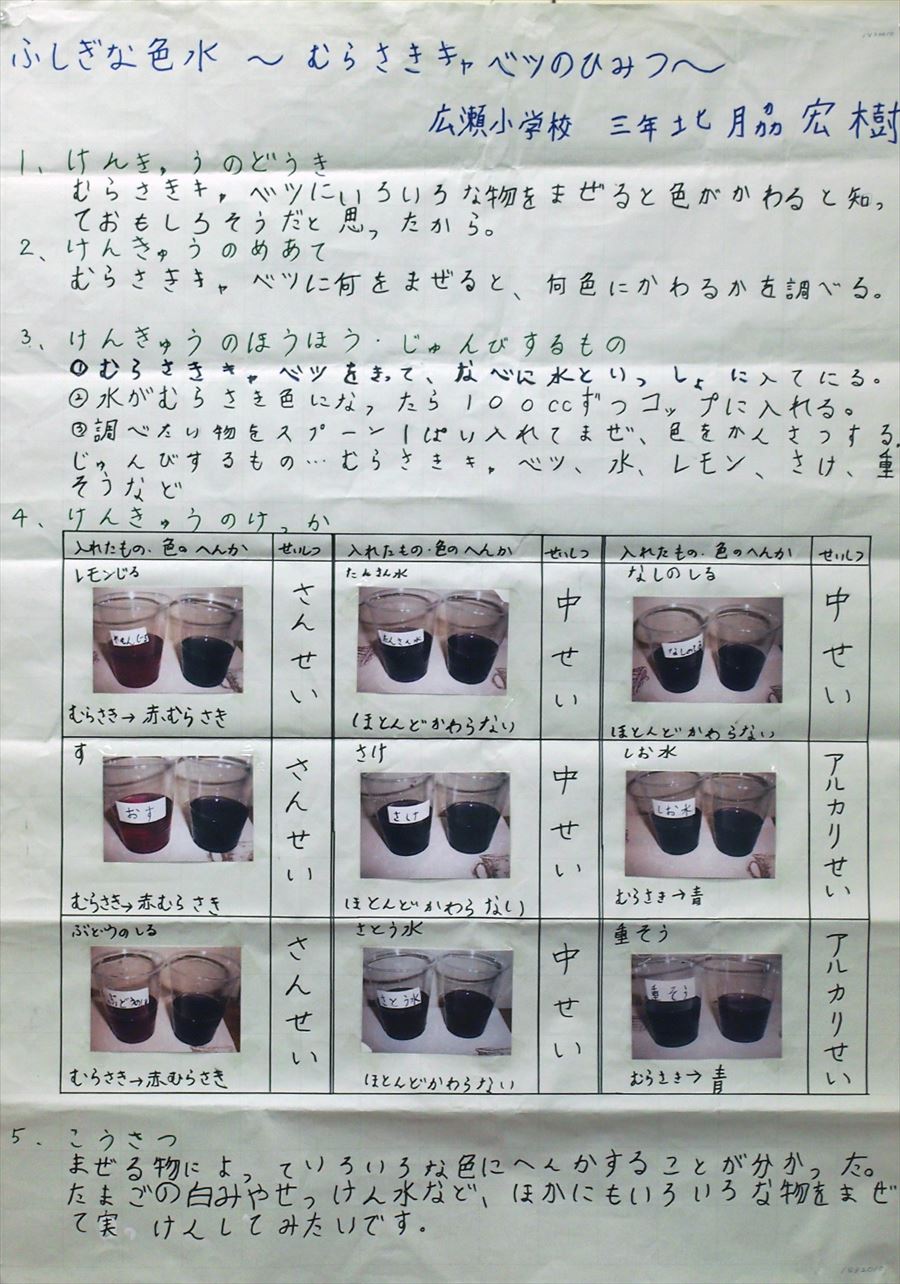 ふしぎな色水 ～ むらさきキャベツのひみつ～
広瀬小学校 三年 北脇 宏樹
1、けんきゅうのどうき
むらさきキャベツにいろいろな物をまぜると色がかわると知っ
ておもしろそうだと思ったから。
2、けんきゅうのめあて
むらさきキャベツに何をまぜると、何色にかわるかを調べる。
3、けんきゅうのほうほう・じゅんびするもの
①むらさきキャベツをきって、なべに水といっしょに入てにる。
②水がむらさき色になったら100ccずつコップに入れる。
③調べたい物をスプーン1ぱい入れてまぜ、色をかんさつする。
じゅんびするもの…むらさきキャベツ、水、レモン、さけ、重
そうなど
4、けんきゅうのけっか
入れたもの・色のへんか せいしつ 入れたもの・色のへんか せいしつ 入れたもの・色のへんか せいしつ
レモンじる
れもんじる
むらさき→赤むらさき
さんせい
たんさん水
たんさん水
ほとんどかわらない
中せい
なしのしる
なしのしる
ほとんどかわらない
中せい
す
おす
むらさき→赤むらさき
さんせい
さけ
さけ
ほとんどかわらない
中せい
しお水
しお水
むらさき→青
アルカリせい
ぶどうのしる
むらさき→赤むらさき
さんせい
さとう水
さとう水
ほとんどかわらない
中せい
重そう
重そう
むらさき→青
アルカリせい
5．こうさつ
まぜる物によっていろいろな色にへんかすることが分かった。
たまごの白みやせっけん水など、ほかにもいろいろな物をまぜ
て実けんしてみたいです。